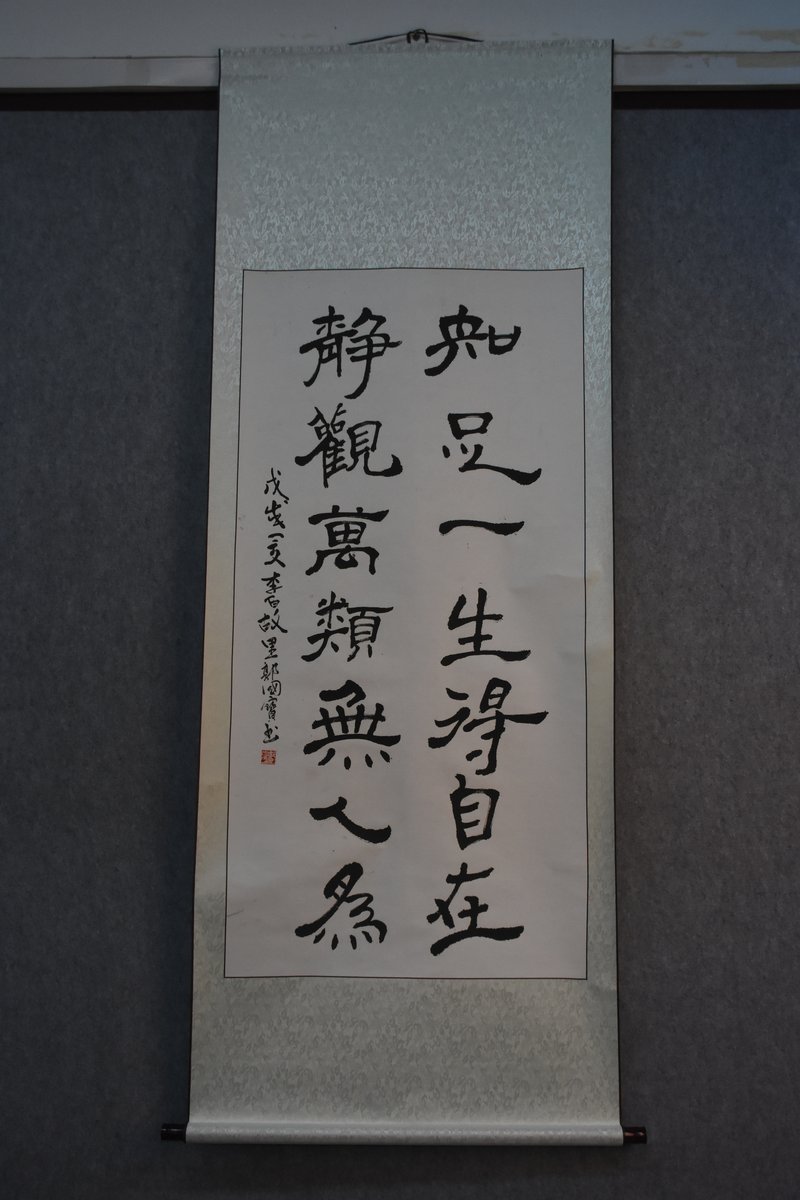 知足一生得自在
靜觀萬類無人為
戊戌 李白故里郭國寶書